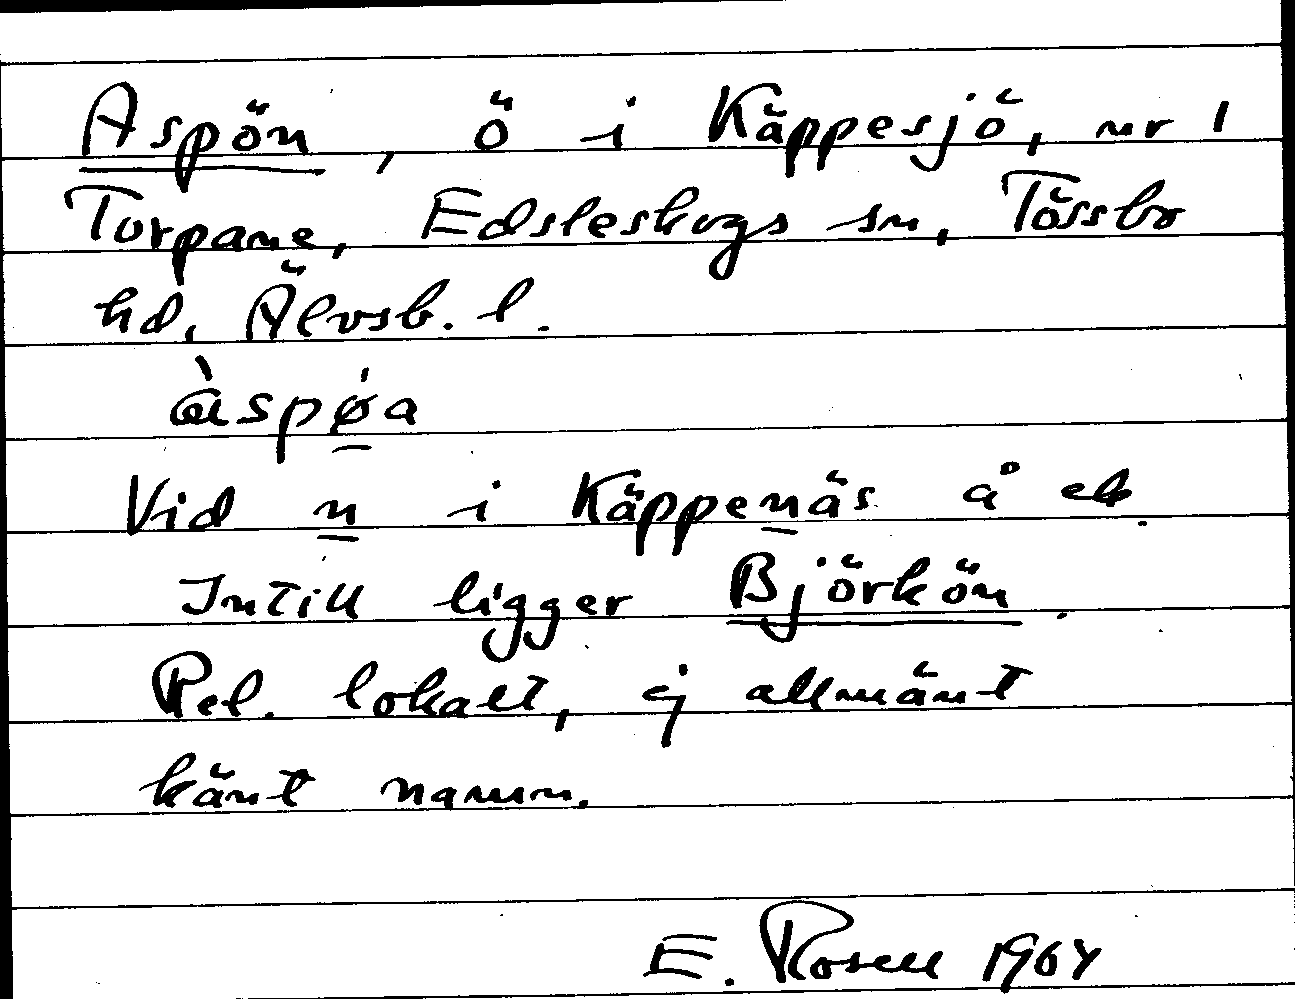 Aspön, ö i Käppesjö, nr 1
Torpane, Edsleskogs sn, Tössbo
hd, Älvsb. l.
àspǿa
Vid n i Käppenäs å ek.
Intill ligger Björkön.
Rel. lokalt, ej allmänt
känt namn.
E. Rosell 1964